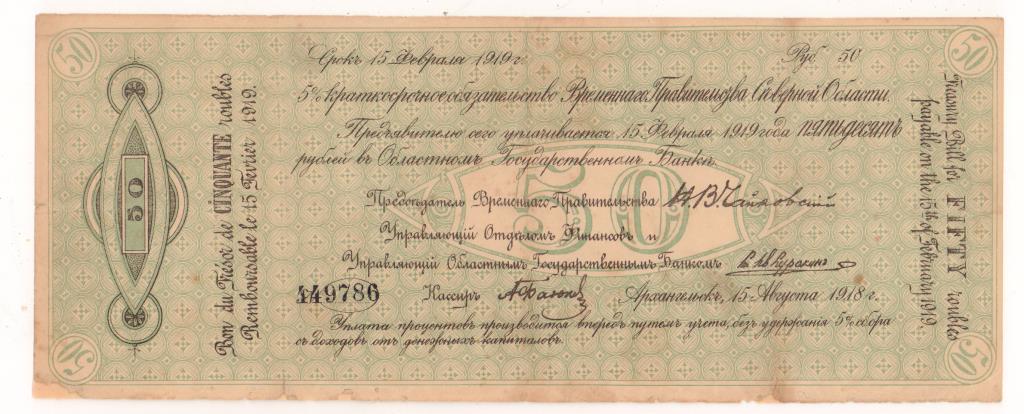 50
50
Срокъ 15 Февраля 1919 г.
Руб. 50
5% краткосрочное обязательство Временнаго Правительства Сѣверной Области.
Предъявителю сего уплачивается 15 Февраля 1919 года пятидесятъ
рублей въ Областномъ Государственномъ Банкѣ.
50
Предсѣдатель Временнаго Правительства Н.В. Чайковскій
Управляющій Отдѣломъ Финансовъ и
Управляющій Областнымъ Государственнымъ Банкомъ Кн. Ив. Куракинъ
449786
Кассиръ
Архангельскъ, 15 Августа 1918 г.
Уплата процентовъ производится впередъ путемъ учета, безъ удержанія 5% сбора
съ доходовъ отъ денежныхъ капиталовъ.
50
Bon du Trésor de CINQUANTE roubles
Remboursable le 15 Fevrier 1919.
Treasury Bill for FIFTY roubles
payable on the 15th of February 1919.
50
50